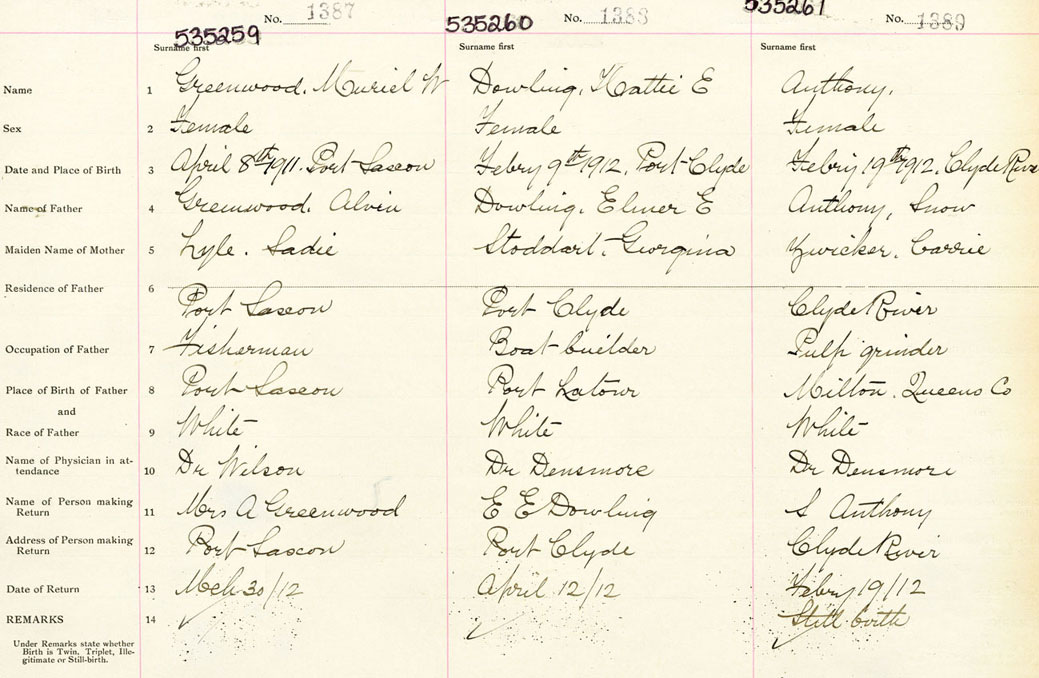 No. 1387 No. 1388 No. 1389
535259 535260 535261
Surname first Surname first Surname first
Name 1 Greenwood. Muriel W Dowling. Hattie E Anthony.
Sex 2 Female Female Female
Date and Place of Birth 3 April 8th 1911. Port Saxon Febry 9th 1912. Port Clyde Febry 19th 1912. Clyde Rive
Name of Father 4 Greenwood. Alvin Dowling. Elmer E Anthony, Snow
Maiden Name of Mother 5 Lyle. Sadie Stoddart. Georgina Zwicker. Carrie
Residence of Father 6 Port Saxon Port Clyde Clyde River
Occupation of Father 7 Fisherman Boat builder Pulp grinder
Place of Birth of Father 8 Port Saxon Port Latour Milton. Queens Co
and
Race of Father 9 White White White
Name of Physician in at-
tendance 10 Dr Wilson Dr Densmore Dr Densmore
Name of Person making
Return 11 Mrs A Greenwood E E Dowling S Anthony
Address of Person making
Return 12 Port Saxon Port Clyde Clyde River
Date of Return 13 Mch 30/12 April 12/12 Febry 19/12
REMARKS 14 Still birth
Under Remarks state whether
Birth is Twin, Triplet, Ille-
gitimate or Still-birth.